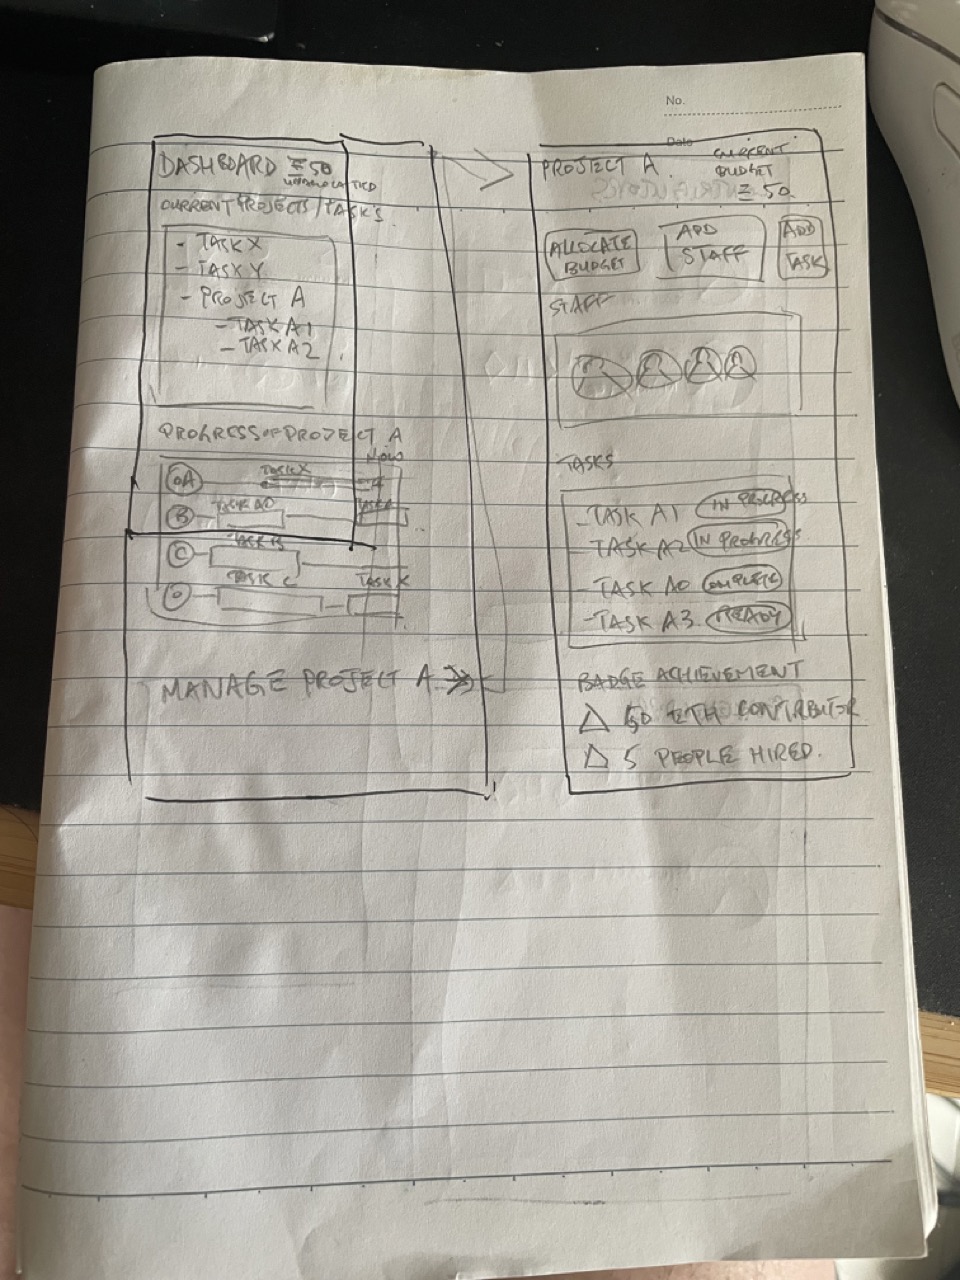 No.
Date
DASHBOARD Ξ 50
UNALLOCATED
CURRENT PROJECTS/TASKS
- TASK X
- TASK Y
- PROJECT A
- TASK A1
- TASK A2
PROGRESS OF PROJECT A
NOW
A TASK X
B TASK A0
C TASK B
TASK C TASK K
MANAGE PROJECT A >>
PROJECT A
CURRENT
BUDGET
Ξ 50
ALLOCATE
BUDGET
ADD
STAFF
ADD
TASK
STAFF
TASKS
- TASK A1 IN PROGRESS
- TASK A2 IN PROGRESS
- TASK A0 COMPLETE
- TASK A3 READY
BADGE ACHIEVEMENT
△ 50 ETH CONTRIBUTOR
△ 5 PEOPLE HIRED.